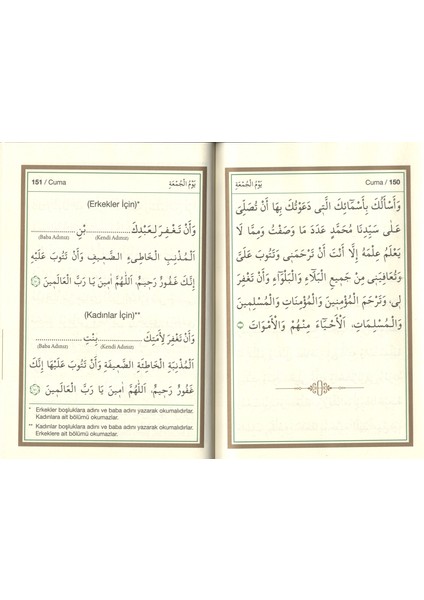 Cuma / 150
يَوْمُ الْجُمُعَةِ
وَاَسْأَلُكَ بِاَسْمَٓائِكَ الَّتٖى دَعَوْتُكَ بِهَا اَنْ تُصَلِّىَ
عَلٰى سَيِّدِنَا مُحَمَّدٍ عَدَدَ مَا وَصَفْتُ وَمِمَّا لَا
يَعْلَمُ عِلْمَهُ اِلَّا اَنْتَ اَنْ تَرْحَمَنٖى وَتَتُوبَ عَلَىَّ
وَتُعَافِيَنٖى مِنْ جَمٖيعِ الْبَلَٓاءِ وَالْبَلْوَٓاءِ وَاَنْ تَغْفِرَ
لٖى وَتَرْحَمَ الْمُؤْمِنٖينَ وَالْمُؤْمِنَاتِ وَالْمُسْلِمٖينَ
وَالْمُسْلِمَاتِ اَلْاَحْيَٓاءِ مِنْهُمْ وَالْاَمْوَاتِ
يَوْمُ الْجُمُعَةِ
151 / Cuma
(Erkekler İçin)*
وَاَنْ تَغْفِرَ لِعَبْدِكَ ............ بْنِ ............
(Kendi Adınız) (Baba Adınız)
اَلْمُذْنِبِ الْخَاطِیءِ الضَّعٖيفِ وَاَنْ تَتُوبَ عَلَيْهِ
اِنَّكَ غَفُورٌ رَحٖيمٌ، اَللّٰهُمَّ اٰمٖينَ يَا رَبَّ الْعَالَمٖينَ
(Kadınlar İçin)**
وَاَنْ تَغْفِرَ لِاَمَتِكَ ............ بِنْتِ ............
(Kendi Adınız) (Baba Adınız)
اَلْمُذْنِبَةِ الْخَاطِئَةِ الضَّعٖيفَةِ وَاَنْ تَتُوبَ عَلَيْهَا اِنَّكَ
غَفُورٌ رَحٖيمٌ، اَللّٰهُمَّ اٰمٖينَ يَا رَبَّ الْعَالَمٖينَ
* Erkekler boşluklara adını ve baba adını yazarak okumalıdırlar.
Kadınlara ait bölümü okumazlar.
** Kadınlar boşluklara adını ve baba adını yazarak okumalıdırlar.
Erkeklere ait bölümü okumazlar.